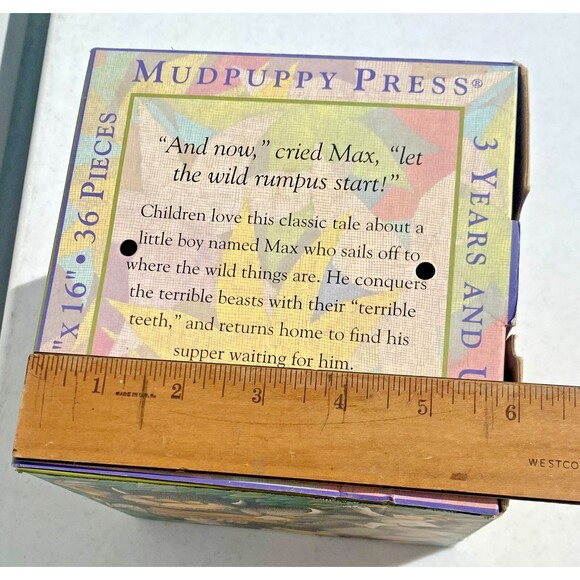 MUDPUPPY PRESS®
"And now," cried Max, "let
the wild rumpus start!"
Children love this classic tale about a
little boy named Max who sails off to
where the wild things are. He conquers
the terrible beasts with their "terrible
teeth," and returns home to find his
supper waiting for him.
" X 16" • 36 PIECES
3 YEARS AND U
1 2 3 4 5 6
MADE IN U.S.A.
WESTCO